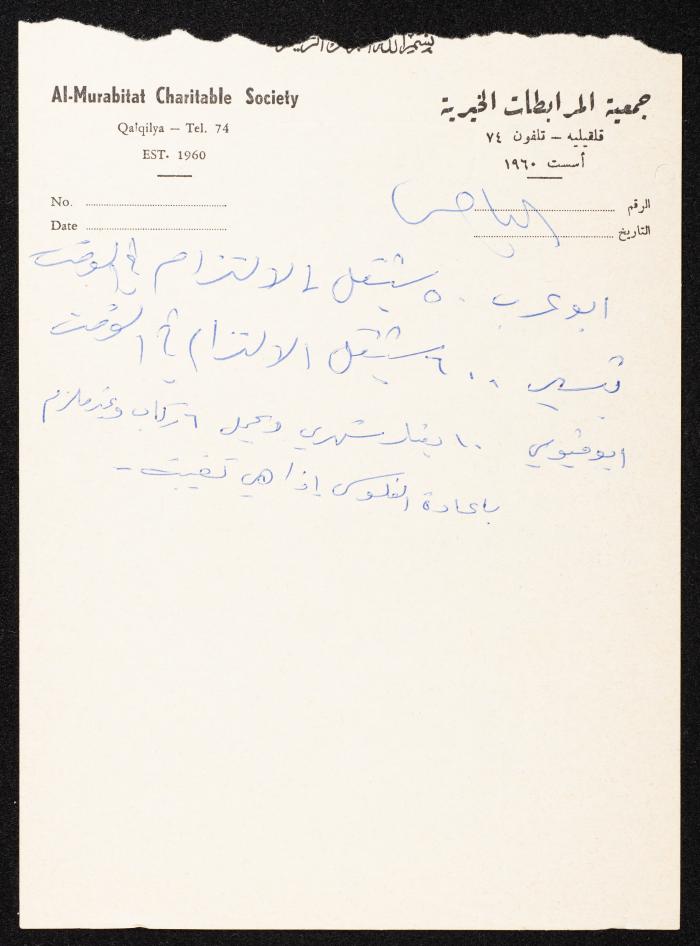 بسم الله الرحمن الرحيم
Al-Murabitat Charitable Society
Qalqilya — Tel. 74
EST. 1960
No.
Date
جمعية المرابطات الخيرية
قلقيليه — تلفون ٧٤
أسست ١٩٦٠
الرقم
التاريخ
الباص
ابو عرب ٥٠ شيقل الالتزام في الوقت
تيسير ٦٠٠ شيقل الالتزام في الوقت
ابو قيومي ١٠٠ دينار شهري ويحمل ٦ ركاب وغير ملزم
باعادة الفلوس إذا هي تغيبت -